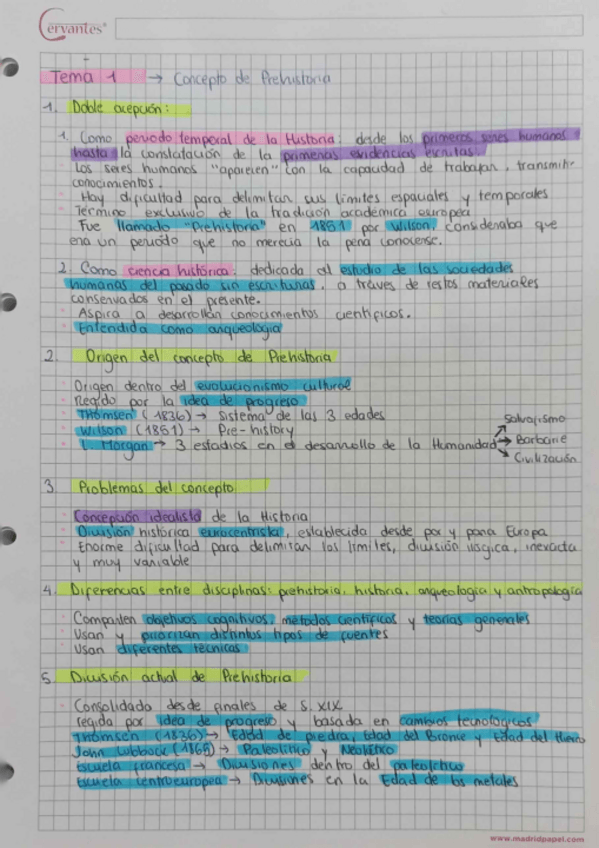 Cervantes
Tema 1 → Concepto de Prehistoria
1. Doble acepción:
1. Como periodo temporal de la Historia: desde los primeros seres humanos
hasta la constatación de la primeras evidencias escritas.
Los seres humanos "aparecen" con la capacidad de trabajar, transmitir
conocimientos.
Hay dificultad para delimitar sus límites espaciales y temporales
Término exclusivo de la tradición académica europea
Fue llamado "Prehistoria" en 1851 por Wilson, consideraba que
era un periodo que no merecía la pena conocerse.
2. Como ciencia histórica: dedicada al estudio de las sociedades
humanas del pasado sin escrituras, a través de restos materiales
conservados en el presente.
Aspira a desarrollar conocimientos científicos.
Entendida como arqueología
2. Origen del concepto de Prehistoria
Origen dentro del evolucionismo cultural
Regido por la idea de progreso
Thomsen (1836) → Sistema de las 3 edades
Wilson (1851) → Pre-history
L. Morgan → 3 estadios en el desarrollo de la Humanidad
Salvajismo
Barbarie
Civilización
3. Problemas del concepto
Concepción idealista de la Historia
División histórica eurocentrista, establecida desde por y para Europa
Enorme dificultad para delimitar los límites, división ilógica, inexacta
y muy variable
4. Diferencias entre disciplinas: prehistoria, historia, arqueología y antropología
Comparten objetivos cognitivos, métodos científicos y teorías generales
Usan y priorizan distintos tipos de fuentes
Usan diferentes técnicas
5. División actual de Prehistoria
Consolidado desde finales de S. XIX
regida por idea de progreso y basada en cambios tecnológicos
Thomsen (1836) → Edad de piedra, Edad del Bronce y Edad del hierro
John Lubbock (1865) → Paleolítico y Neolítico
Escuela francesa → Divisiones dentro del paleolítico
Escuela centroeuropea → Divisiones en la Edad de los metales
www.madridpapel.com